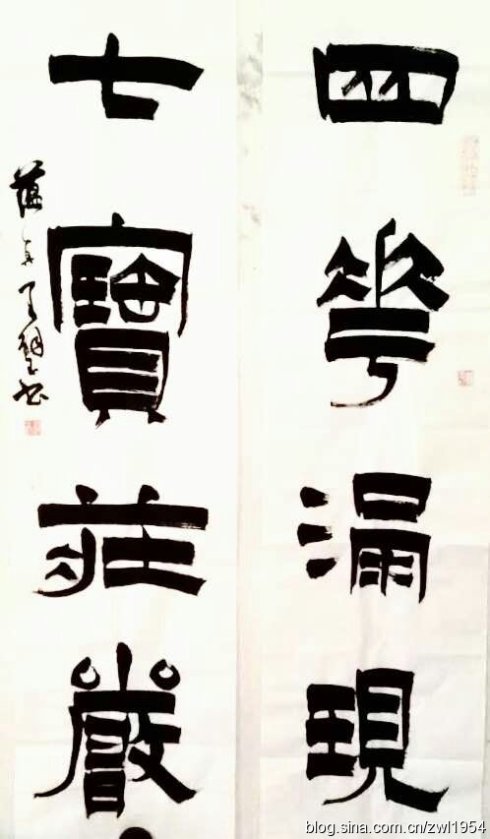 四華漏現
七寶莊嚴
blog.sina.com.cn/zwl1954